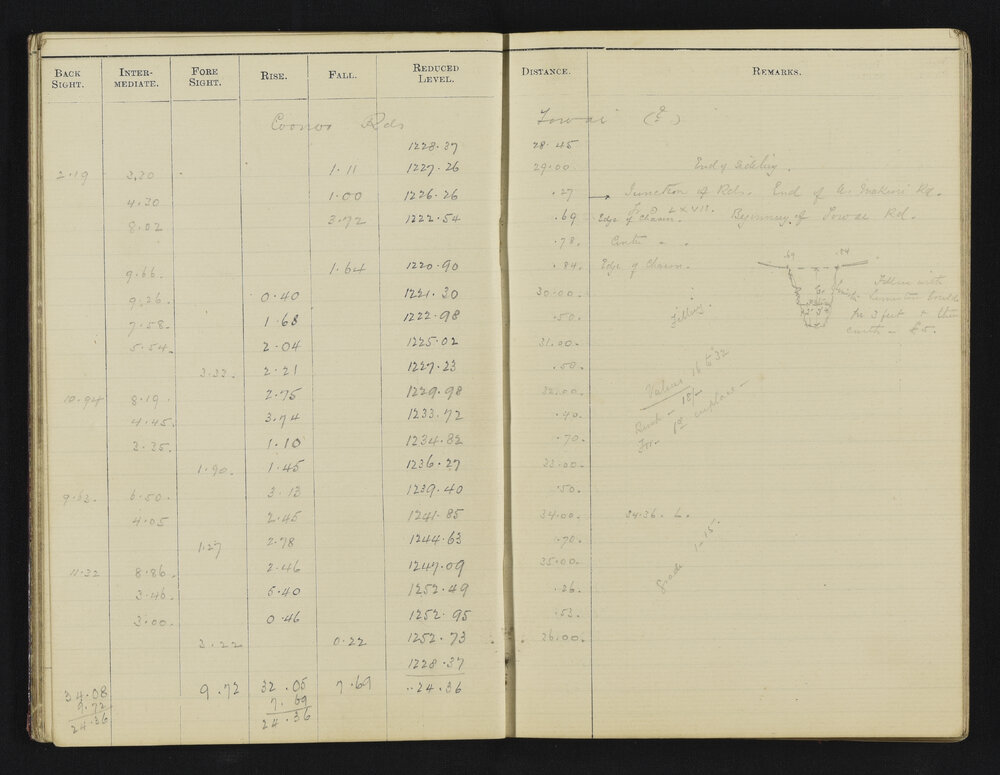 BACK SIGHT. INTER-MEDIATE. FORE SIGHT. RISE. FALL. REDUCED LEVEL. DISTANCE. REMARKS.
Rds Towai (E)
1228.37 28.45
2.19 3.30 1.11 1227.26 29.00 End of sideling
4.30 1.00 1226.26 .27 → Junction of Rds. End of Rd.
8.02 3.72 1222.54 .69 Edge of Chasm. LXVII. Beginning of Towai Rd.
.78.
9.66. 1.64 1220.90 .84. Edge of Chasm. .69 .84
9.26. 0.40 1221.30 30.00. Filling with
7.58. 1.68 1222.98 .50. Filling. for 3 feet + then
5.54. 2.04 1225.02 31.00. earth - £5.
3.33. 2.21 1227.23 .50.
10.94 8.19. 2.75 1229.98 32.00. Value 16 to 32
4.45. 3.74 1233.72 .40. Bush - 18/-
3.35. 1.10 1234.82 .70.
1.90. 1.45 1236.27 33.00.
9.63. 6.50. 3.13 1239.40 .50.
4.05 2.45 1241.85 34.00. 34.36. L.
1.27 2.78 1244.63 .70.
11.32 8.86. 2.46 1247.09 35.00. Grade 1-15.
3.46. 5.40 1252.49 .26.
3.00. 0.46 1252.95 .53.
3.22 0.22 1252.73 36.00.
1228.37
34.08 9.72 32.05 7.69 24.36
9.72 7.69
24.36 24.36